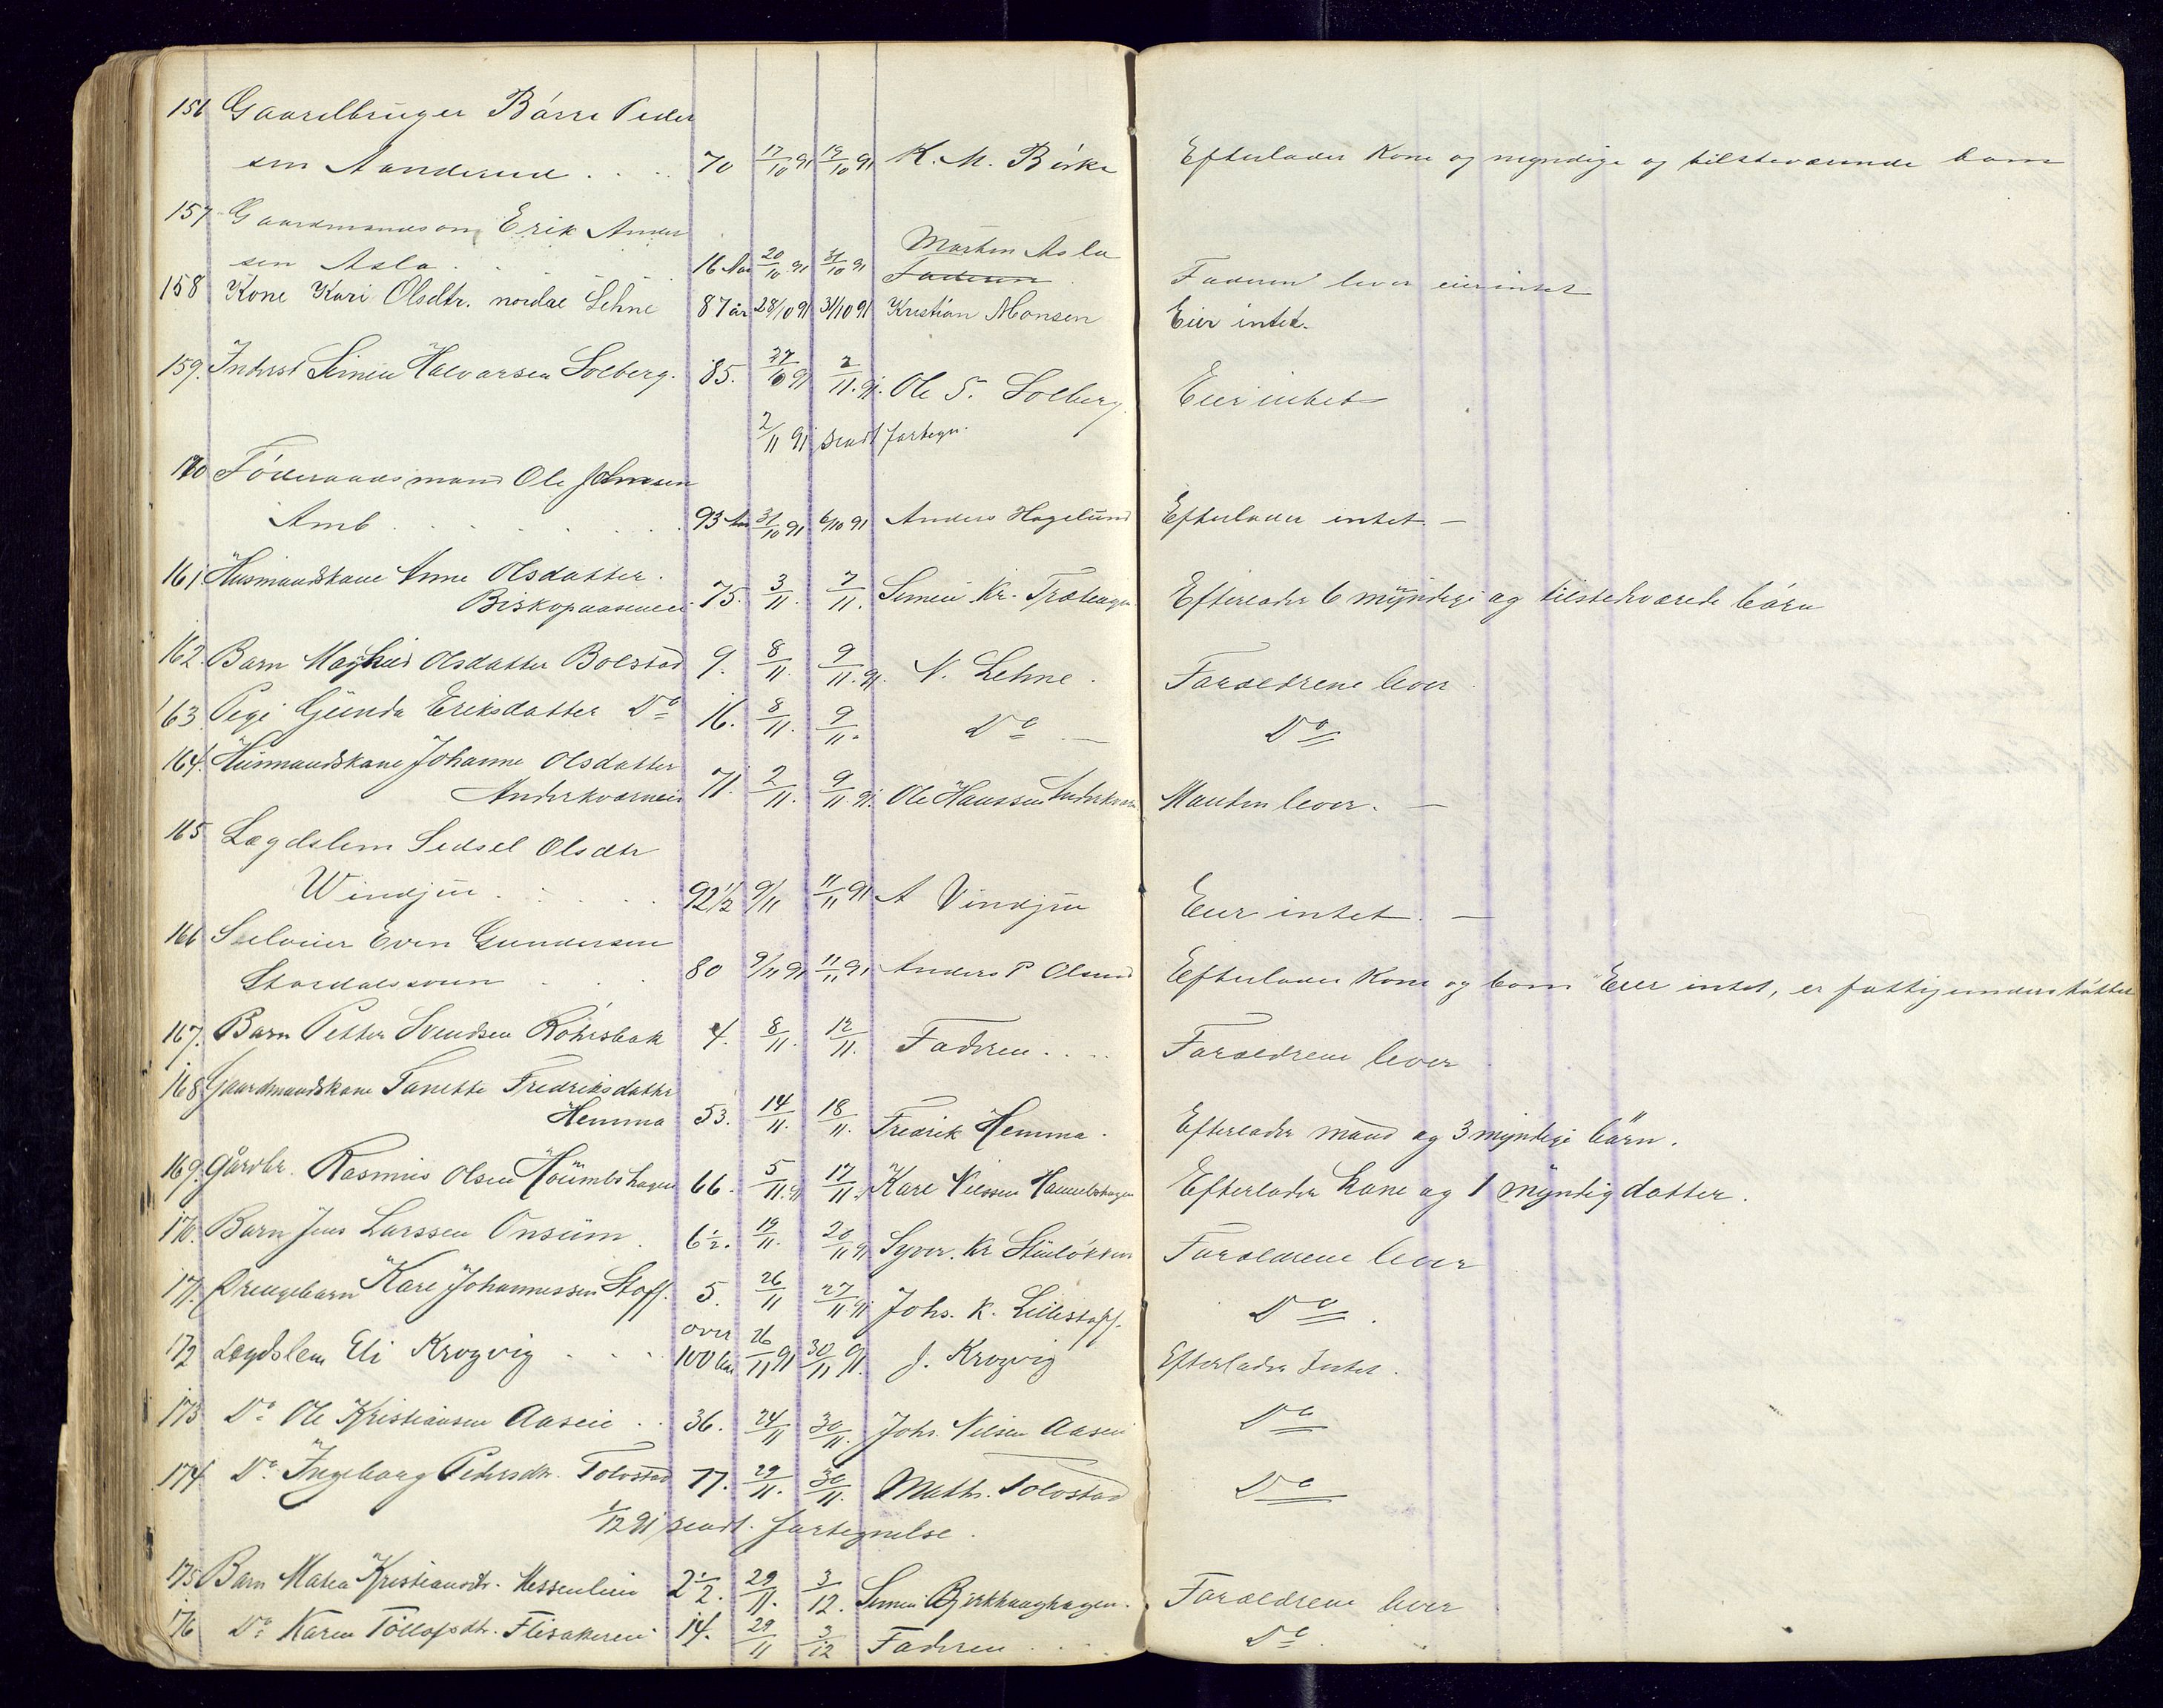 156 Gaardbruger Börre Peder
sen Aanderud . . . 70 17/10 91 19/10 91 K. M. Börke Efterlader Kone og myndige og tilsteværende barn
157 Gaardmandsøn Erik Ander
sen Asla . . . 16 Aar 20/10 91 31/10 91 Morten Asla Faderen Faderen lever eier intet
158 Kone Kari Olsdtr. nordre Sehne 87 år 28/10 91 31/10 91 Kristian Monsen Eier intet.
159. Inderst Simen Halvorsen Solberg. 85. 27/10 91 2/11. 91. Ole S. Solberg. Eier intet
2/11 91 sendt fortegn.
160 Föderaadsmand Ole Johnsen
Amb . . . 93 Aar 31/10 91 6/10 91 Anders Hagelund Efterlader intet —
161. Husmandskone Anne Olsdatter.
Biskopaaseneie 75. 3/11. 7/11. Simen Kr. Efterlader 6 myndige og tilstedværede börn
162. Barn Olsdatter Bolstad 9. 8/11. 9/11. 91. N. Lehne. Foraeldrene lever.
163. Pige Gunda Eriksdatter Do 16. 8/11. 9/11. Do — Do
164. Husmandskone Johanne Olsdatter
Anderkværneie 71. 2/11. 9/11. 91. Ole Hanssen Anderkværn Manden lever. —
165 Lægdslem Sidsel Olsdtr
Windju . . . 92 1/2 9/11 11/11 91 A Vindju Eier intet. —
166 Selveier Even Gundersen
. . . 80 9/11 91 11/11 91 Anders P Olsrud Efterlader Kone og barn Eier intet, er fattigunderstöttet
167. Barn Petter Svendsen Röhrsbak 4. 8/11. 12/11. Faderen . . . Foraeldrene lever
168. Gaardmandskone Tanette Fredriksdatter
Hemma 53. 14/11. 18/11. Fredrik Hemma. Efterlader mand og 3 myndige börn.
169. Gårdbr. Rasmus Olsen Höumbshagen 66. 5/11. 91 17/11. Karl Nilssen Efterlader kone og 1 myndig datter.
170. Barn Jens Larssen Onsum 6 1/2. 19/11. 20/11 91 Syver. Kr Stulökken Foraeldrene lever
171. Drengebarn Kare Johannessen Stoff. 5. 26/11 27/11. 91 Johs. K. Lillestoff. Do.
172 Lægdslem Eli Krogvig . . . over 100 Aar 26/11 91 30/11 91. J. Krogvig Efterlader Intet.
173 Do Ole Kristiansen Aaseie . . 36. 24/11 30/11. Johs. Nilsen Aasen Do
174 Do. Ingeborg Pedersdtr. Tolvstad 77. 29/11. 30/11. Math. Tolvstad Do
1/12 91 sendt fortegnelse.
175 Barn Matea Kristiansdtr. 2 1/2. 29/11. 3/12. Simen Björkhaughagen. Foraeldrene lever
176 Do Karen Tollofsdtr. Flisakereie 14. 29/11 3/12 Faderen . . . Do.